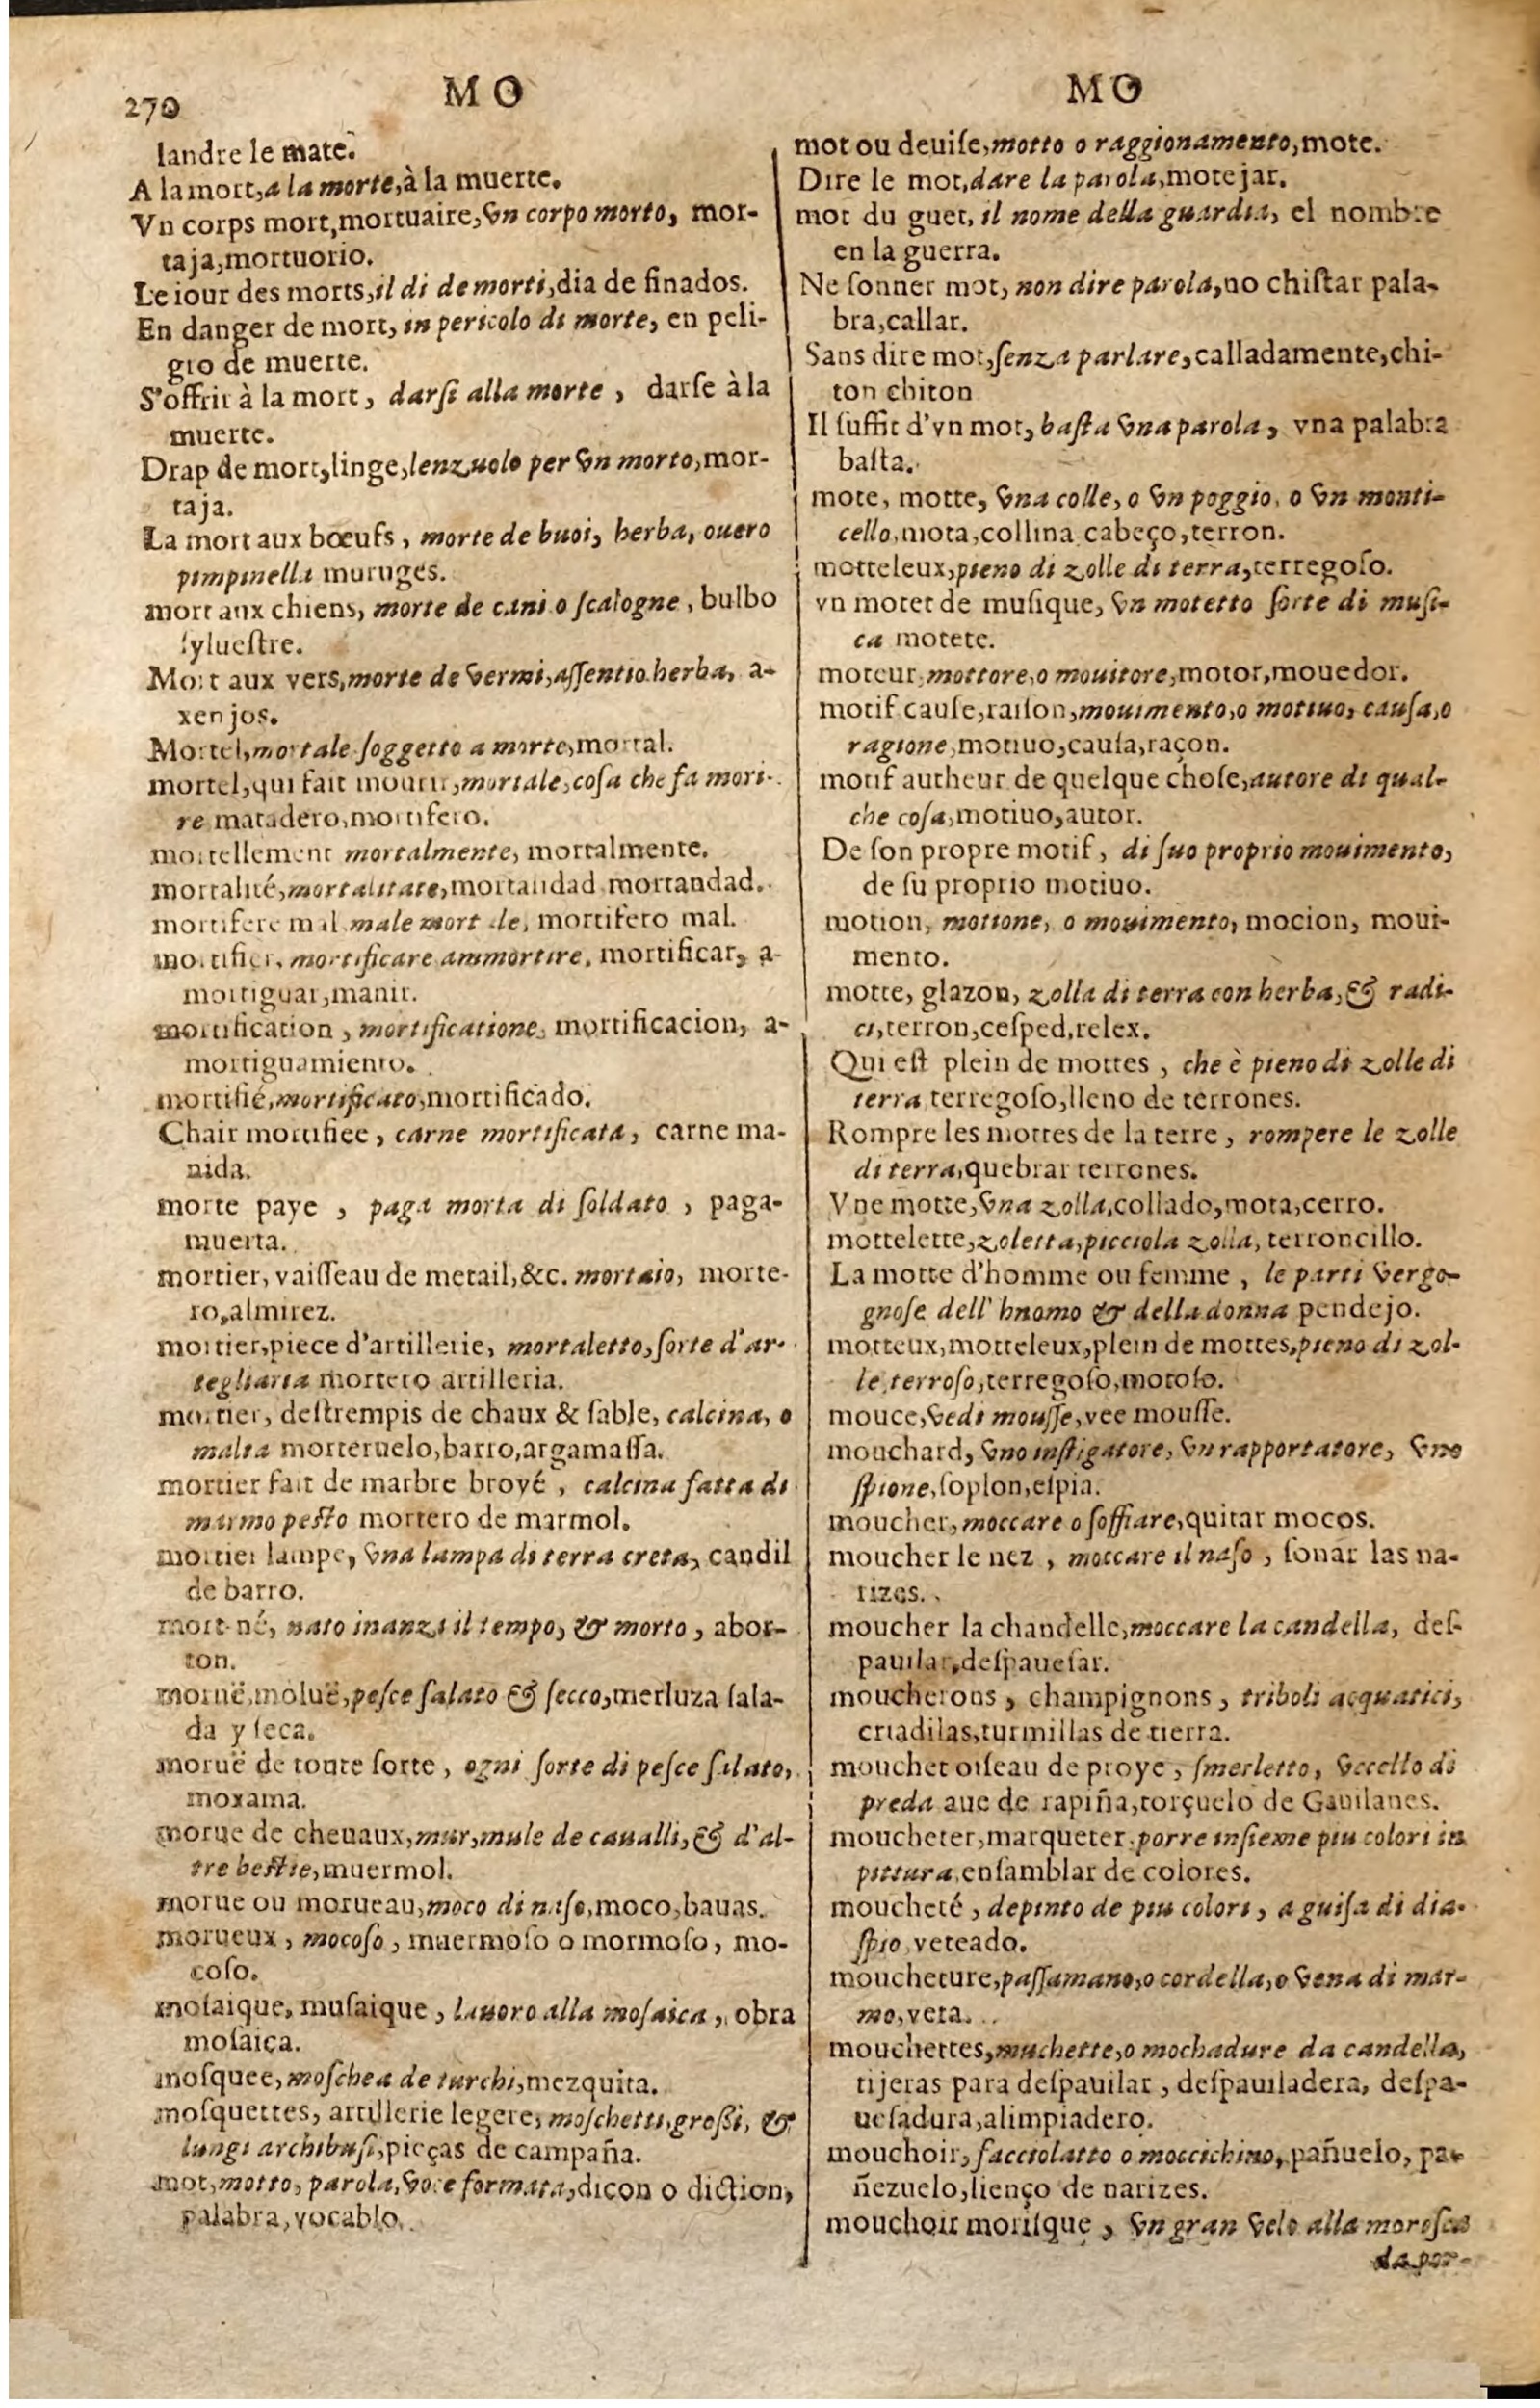 270
MO
MO
landre le mate.
A la mort, a la morte, à la muerte.
Vn corps mort, mortuaire, vn corpo morto, mor-
taja, mortuorio.
Le iour des morts, il di de morti, dia de finados.
En danger de mort, in pericolo di morte, en peli-
gro de muerte.
S'offrir à la mort, darſi alla morte, darſe à la
muerte.
Drap de mort, linge, lenzuolo per vn morto, mor-
taja.
La mort aux bœufs, morte de buoi, herba, ouero
pimpinella muruges.
mort aux chiens, morte de cani o ſcalogne, bulbo
ſylueſtre.
Mort aux vers, morte de vermi, aſſentio herba, a-
xenjos.
Mortel, mortale ſoggetto a morte, mortal.
mortel, qui fait mourir, mortale, coſa che fa mori-
re matadero, mortifero.
mortellement mortalmente, mortalmente.
mortalité, mortalitate, mortalidad mortandad.
mortifere mal male mort le, mortifero mal.
mortifier, mortificare ammortire, mortificar, a-
mortiguar, manir.
mortification, mortificatione, mortificacion, a-
mortiguamiento.
mortifié, mortificato, mortificado.
Chair mortifiee, carne mortificata, carne ma-
nida.
morte paye, paga morta di ſoldato, paga-
muerta.
mortier, vaiſſeau de metail, &c. mortaio, morte-
ro, almirez.
mortier, piece d'artillerie, mortaletto, ſorte d'ar-
tegliaria mortero artilleria.
mortier, deſtrempis de chaux & ſable, calcina, o
malta morteruelo, barro, argamaſſa.
mortier fait de marbre broyé, calcina fatta di
marmo peſto mortero de marmol.
mortier lampe, vna lampa di terra creta, candil
de barro.
mort-né, nato inanzi il tempo, & morto, abor-
ton.
moruë, moluë, peſce ſalato & ſecco, merluza ſala-
da y ſeca.
moruë de toute ſorte, ogni ſorte di peſce ſalato,
moxama.
morue de cheuaux, mur, mule de caualli, & d'al-
tre beſtie, muermol.
morue ou morueau, moco di naſo, moco, bauas.
morueux, mocoſo, muermoſo o mormoſo, mo-
coſo.
moſaique, muſaique, lauoro alla moſaica, obra
moſaica.
moſquee, moſchea de turchi, mezquita.
moſquettes, artillerie legere, moſchetti, groſſi, &
lungi archibuſi, pieças de campaña.
mot, motto, parola, voce formata, dicon o diction,
palabra, vocablo.
mot ou deuiſe, motto o raggionamento, mote.
Dire le mot, dare la parola, motejar.
mot du guet, il nome della guardia, el nombre
en la guerra.
Ne ſonner mot, non dire parola, no chiſtar pala-
bra, callar.
Sans dire mot, ſenza parlare, calladamente, chi-
ton chiton
Il ſuffit d'vn mot, baſta vna parola, vna palabra
baſta.
mote, motte, vna colle, o vn poggio, o vn monti-
cello, mota, collina cabeço, terron.
motteleux, pieno di zolle di terra, terregoſo.
vn motet de muſique, vn motetto ſorte di muſi-
ca motete.
moteur, mottore, o mouitore, motor, mouedor.
motif cauſe, raiſon, mouimento, o motiuo, cauſa, o
ragione, motiuo, cauſa, raçon.
motif autheur de quelque choſe, autore di qual-
che coſa, motiuo, autor.
De ſon propre motif, di ſuo proprio mouimento,
de ſu proprio motiuo.
motion, mottone, o mouimento, mocion, moui-
mento.
motte, glazon, zolla di terra con herba, & radi-
ci, terron, ceſped, relex.
Qui eſt plein de mottes, che è pieno di zolle di
terra terregoſo, lleno de terrones.
Rompre les mottes de la terre, rompere le zolle
di terra, quebrar terrones.
Vne motte, vna zolla, collado, mota, cerro.
mottelette, zoletta, picciola zolla, terroncillo.
La motte d'homme ou femme, le parti vergo-
gnoſe dell' hnomo & della donna pendejo.
motteux, motteleux, plein de mottes, pieno di zol-
le, terroſo, terregoſo, motoſo.
mouce, vedi mouſſe, vee mouſſe.
mouchard, vno inſtigatore, vn rapportatore, vno
ſpione, ſoplon, eſpia.
moucher, moccare o ſoffiare, quitar mocos.
moucher le nez, moccare il naſo, ſonar las na-
rizes.
moucher la chandelle, moccare la candella, deſ-
pauilar, deſpaueſar.
moucherons, champignons, triboli acquatici,
criadilas, turmillas de tierra.
mouchet oiſeau de proye, ſmerletto, vccello di
preda aue de rapiña, torçuelo de Gauilanes.
moucheter, marqueter, porre inſieme piu colori in
pittura, enſamblar de colores.
moucheté, depinto de piu colori, a guiſa di dia-
ſpio, veteado.
moucheture, paſſamano, o cordella, o vena di mar-
mo, veta.
mouchettes, muchette, o mochadure da candella,
tijeras para deſpauilar, deſpauiladera, deſpa-
ueſadura, alimpiadero.
mouchoir, facciolatto o moccichino, pañuelo, pa-
ñezuelo, lienço de narizes.
mouchoir moriſque, vn gran velo alla moreſca
da por-